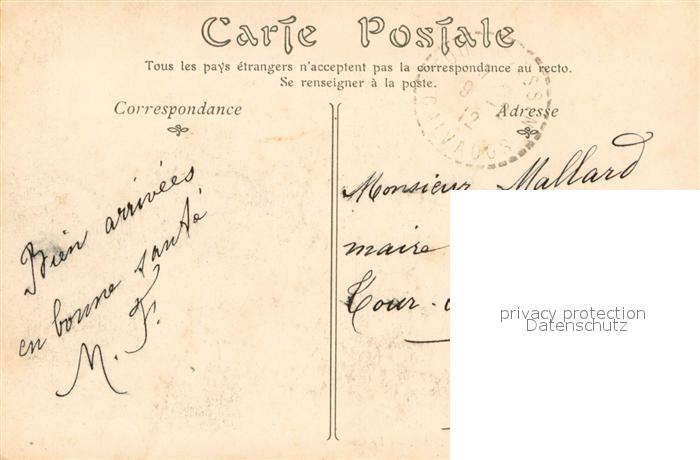 Carte Postale
Tous les pays étrangers n'acceptent pas la correspondance au recto.
Se renseigner à la poste.
Correspondance
Adresse
CALVADOS
9
12
Bien arrivées
en bonne santé
M. F.
Monsieur Mallard
maire
Tour-
privacy protection
Datenschutz